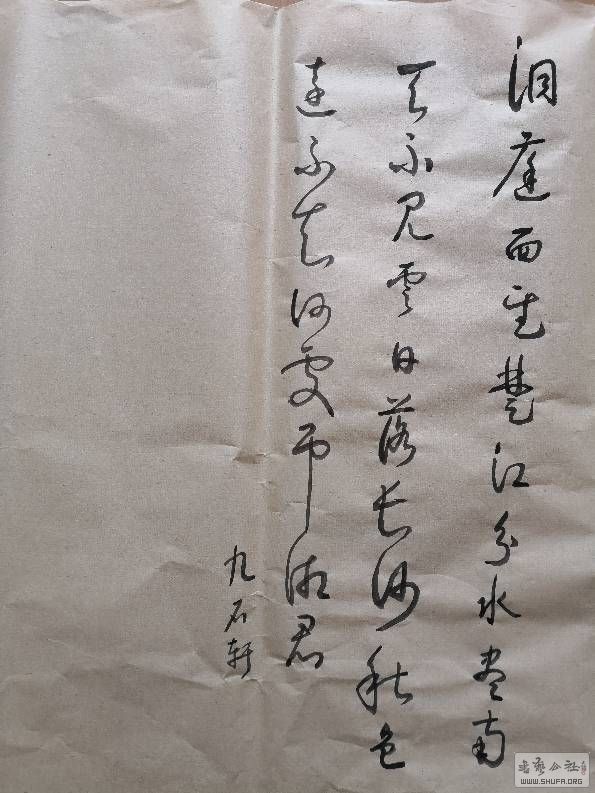 洞庭西望楚江分水尽南
天不见雲日落长沙秋色
遠不知何處吊湘君
九石轩
书艺公社
WWW.SHUFA.ORG